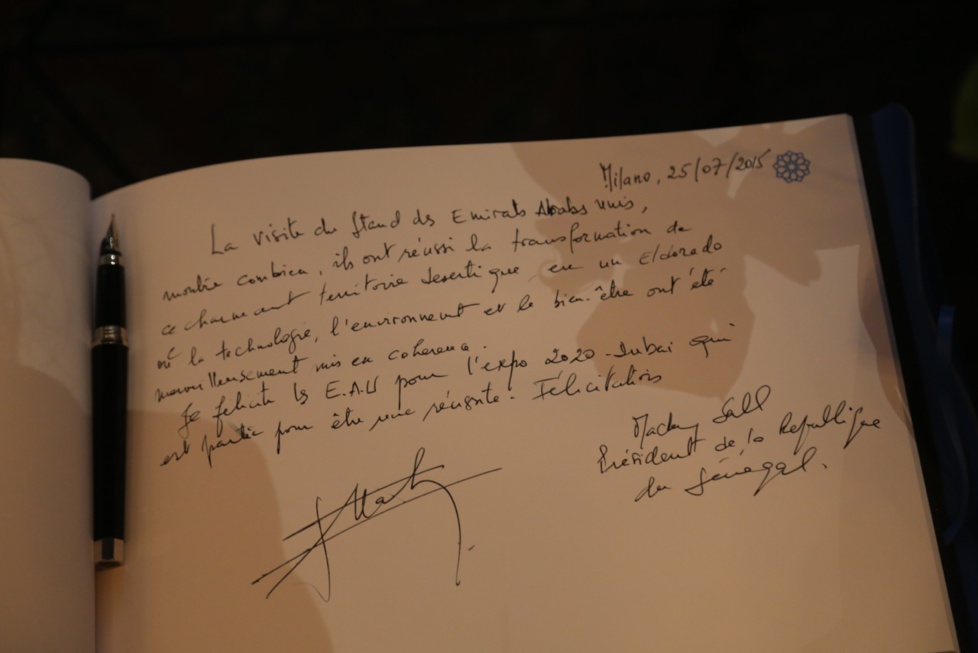 Milano, 25/07/2015
La visite du Stand des Emirats Arabes Unis,
montre combien, ils ont réussi la transformation de
ce charmant territoire desertique en un Eldorado
où la technologie, l'environnement et le bien-être ont été
merveilleusement mis en coherence.
Je felicite les E.A.U pour l'expo 2020-Dubai qui
est partie pour être une réussite. Félicitations
Macky Sall
Président de la Republique
du Sénégal.